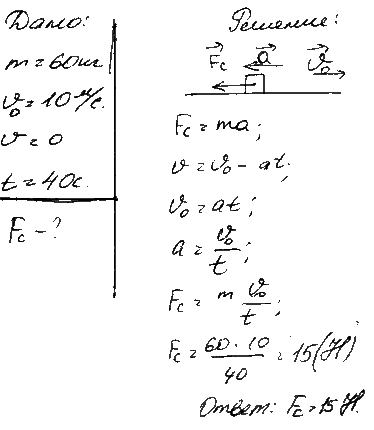 Дано:
m = 60 кг
v₀ = 10 м/с.
v = 0
t = 40 с.
Fc - ?
Решение:
Fc a v₀
Fc = ma;
v = v₀ - at;
v₀ = at;
a = v₀/t;
Fc = m v₀/t;
Fc = 60 · 10/40 = 15 (Н)
Ответ: Fc = 15 Н.